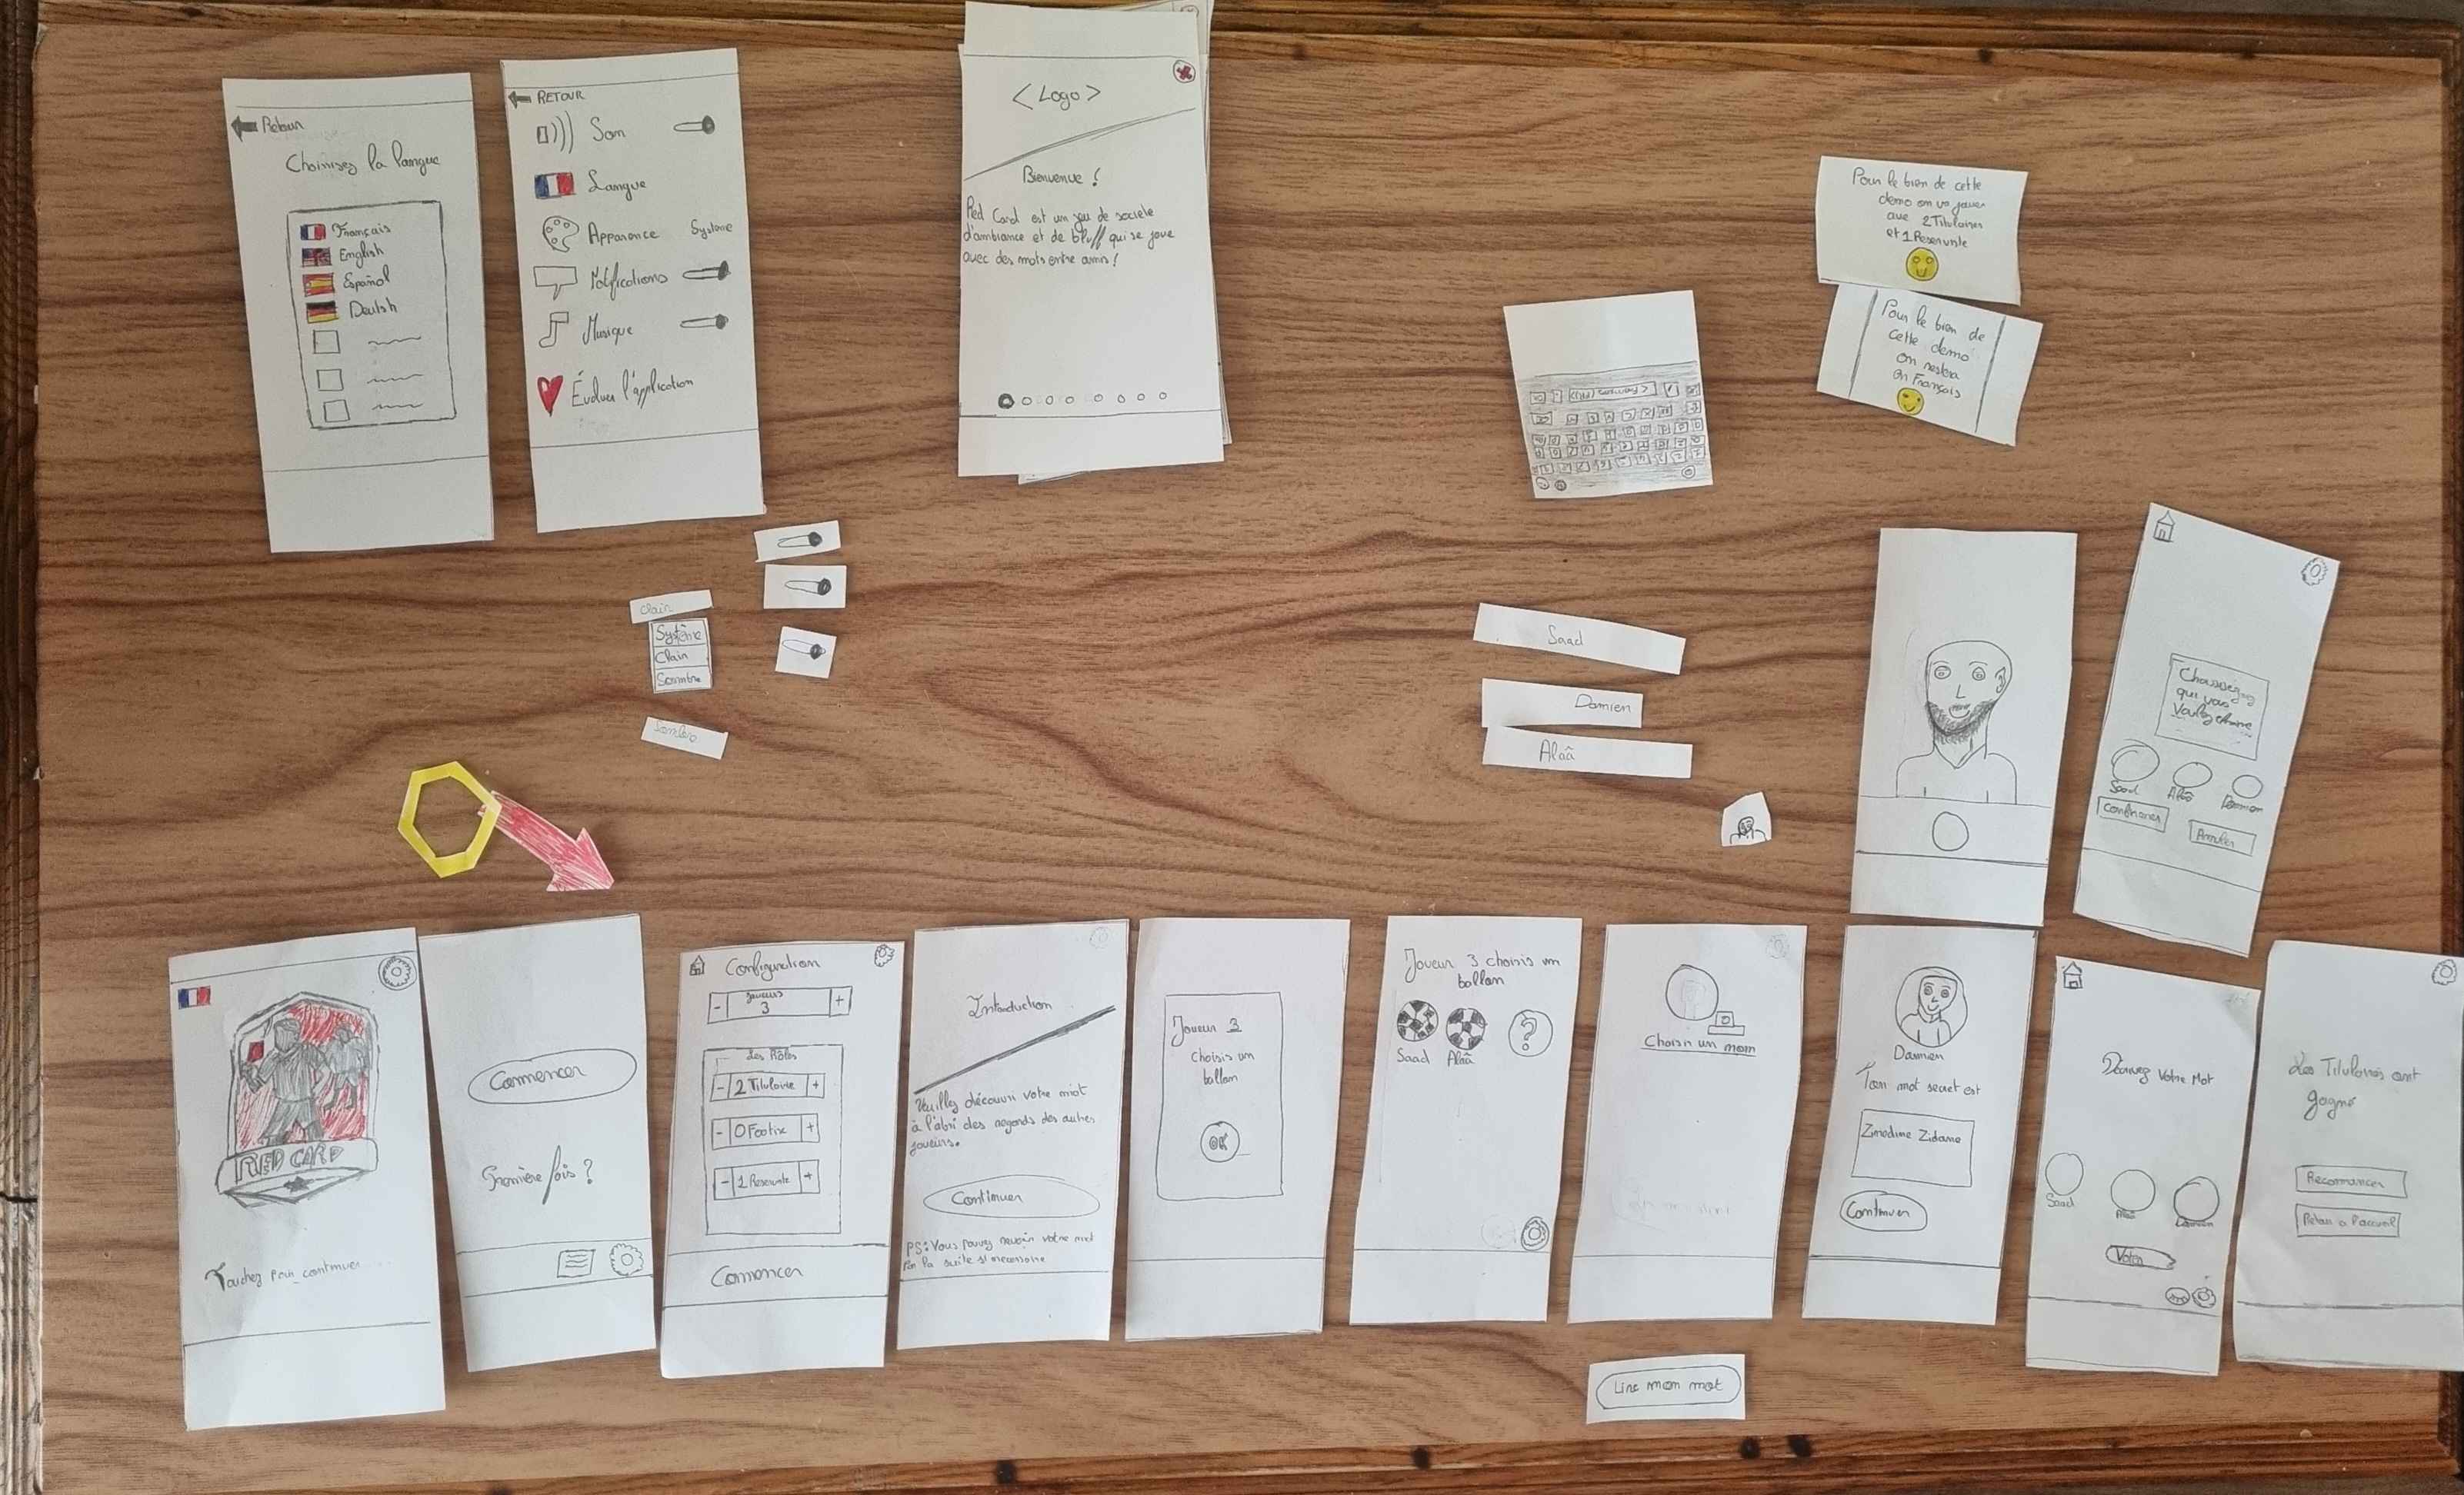 Retour
Choisissez la langue
Français
English
Español
Deutsh
RETOUR
Son
Langue
Apparence Système
Notifications
Musique
Évaluer l'application
<Logo>
Bienvenue !
Red Card est un jeu de société
d'ambiance et de bluff qui se joue
avec des mots entre amis !
Pour le bien de cette
demo on va jouer
avec 2 Titulaires
et 1 Reserviste
Pour le bien de
cette demo
on restera
en Français
Clair
Système
Clair
Sombre
Sombre
Saad
Damien
Alaâ
Choisissez
qui vous
voulez
Saad Alaâ Damien
Confirmer
Annuler
RED CARD
Touchez pour continuer....
Commencer
Première fois ?
Configuration
Joueurs
- 3 +
Les Rôles
- 2 Titulaire +
- 0 Footix +
- 1 Reserviste +
Commencer
Introduction
Veuillez découvrir votre mot
à l'abri des regards des autres
joueurs.
Continuer
PS: Vous pouvez revoir votre mot
par la suite si necessaire
Joueur 3
Choisis un
ballon
OK
Joueur 3 choisis un
ballon
?
Saad Alaâ
Choisir un nom
Damien
Ton mot secret est
Zinedine Zidane
Continuer
Lire mon mot
Décrivez Votre Mot
Saad Alaâ Damien
Voter
Les Titulaires ont
gagné
Recommencer
Retour a l'accueil